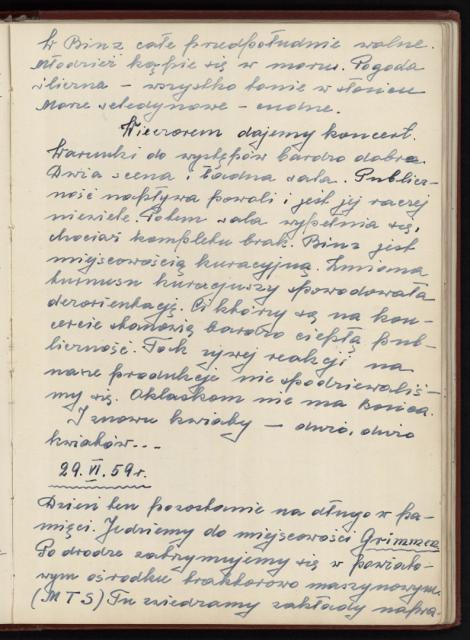 W Binz całe przedpołudnie wolne.
Młodzież kąpie się w morzu. Pogoda
śliczna – wszystko tonie w słońcu
Morze seledynowe – cudne.
Wieczorem dajemy koncert.
Warunki do występów bardzo dobre.
Duża scena i ładna sala. Publicz-
ność napływa powoli i jest jej raczej
niewiele. Potem sala wypełnia się,
chociaż kompletu brak. Binz jest
miejscowością kuracyjną. Zmiana
turnusu kuracjuszy spowodowała
dezorientację. Ci którzy są na kon-
cercie stanowią bardzo ciepłą pub-
liczność. Tak żywej reakcji na
nasze produkcje nie spodziewaliś-
my się. Oklaskom nie ma końca.
I znowu kwiaty – dużo, dużo
kwiatów...
29. VI. 59 r.
Dzień ten pozostanie na długo w pa-
mięci. Jedziemy do miejscowości Grimmen
Po drodze zatrzymujemy się w powiato-
wym ośrodku traktorowo maszynowym.
(MTS) Tu zwiedzamy zakłady napra-